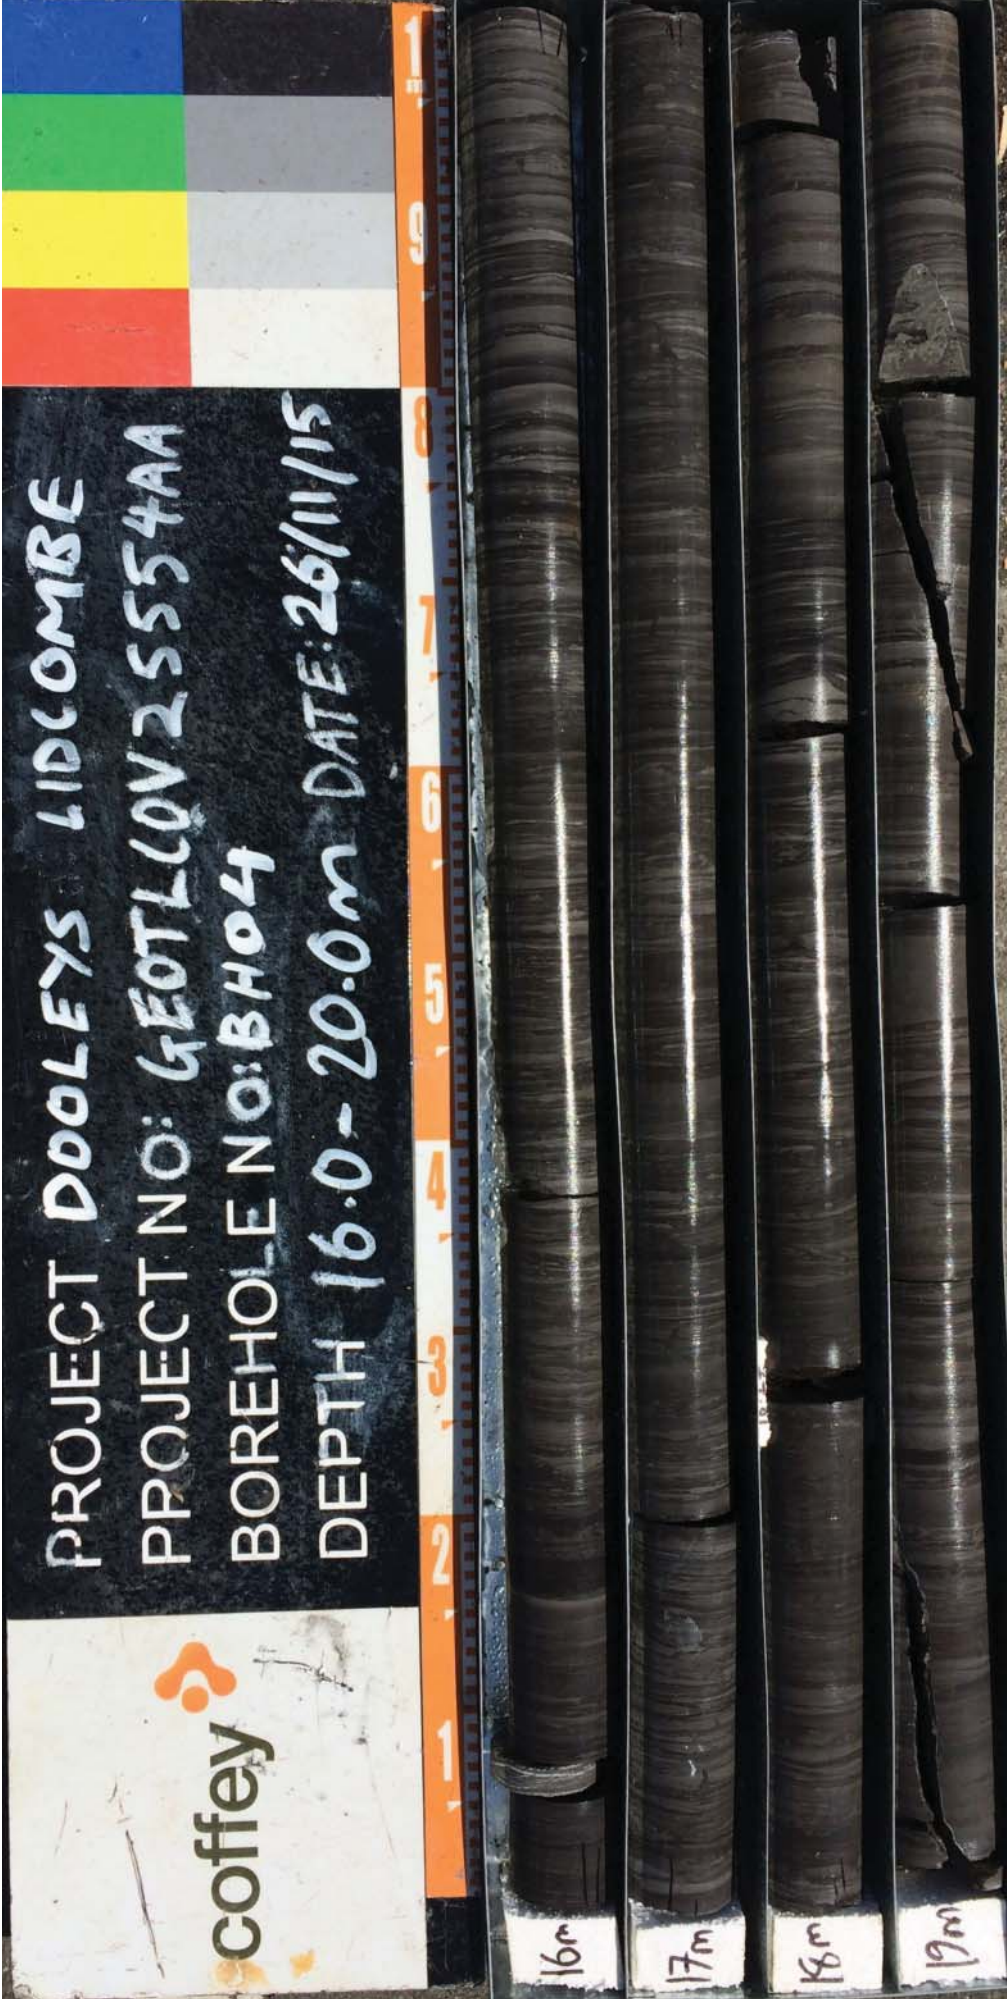 PROJECT DOOLEYS LIDCOMBE
PROJECT NO: GEOTLCOV25554AA
BOREHOLE NO: BH04
DEPTH 16.0-20.0m DATE: 26/11/15
coffey
1
2
3
4
5
6
7
8
9
1m
16m
17m
18m
19m